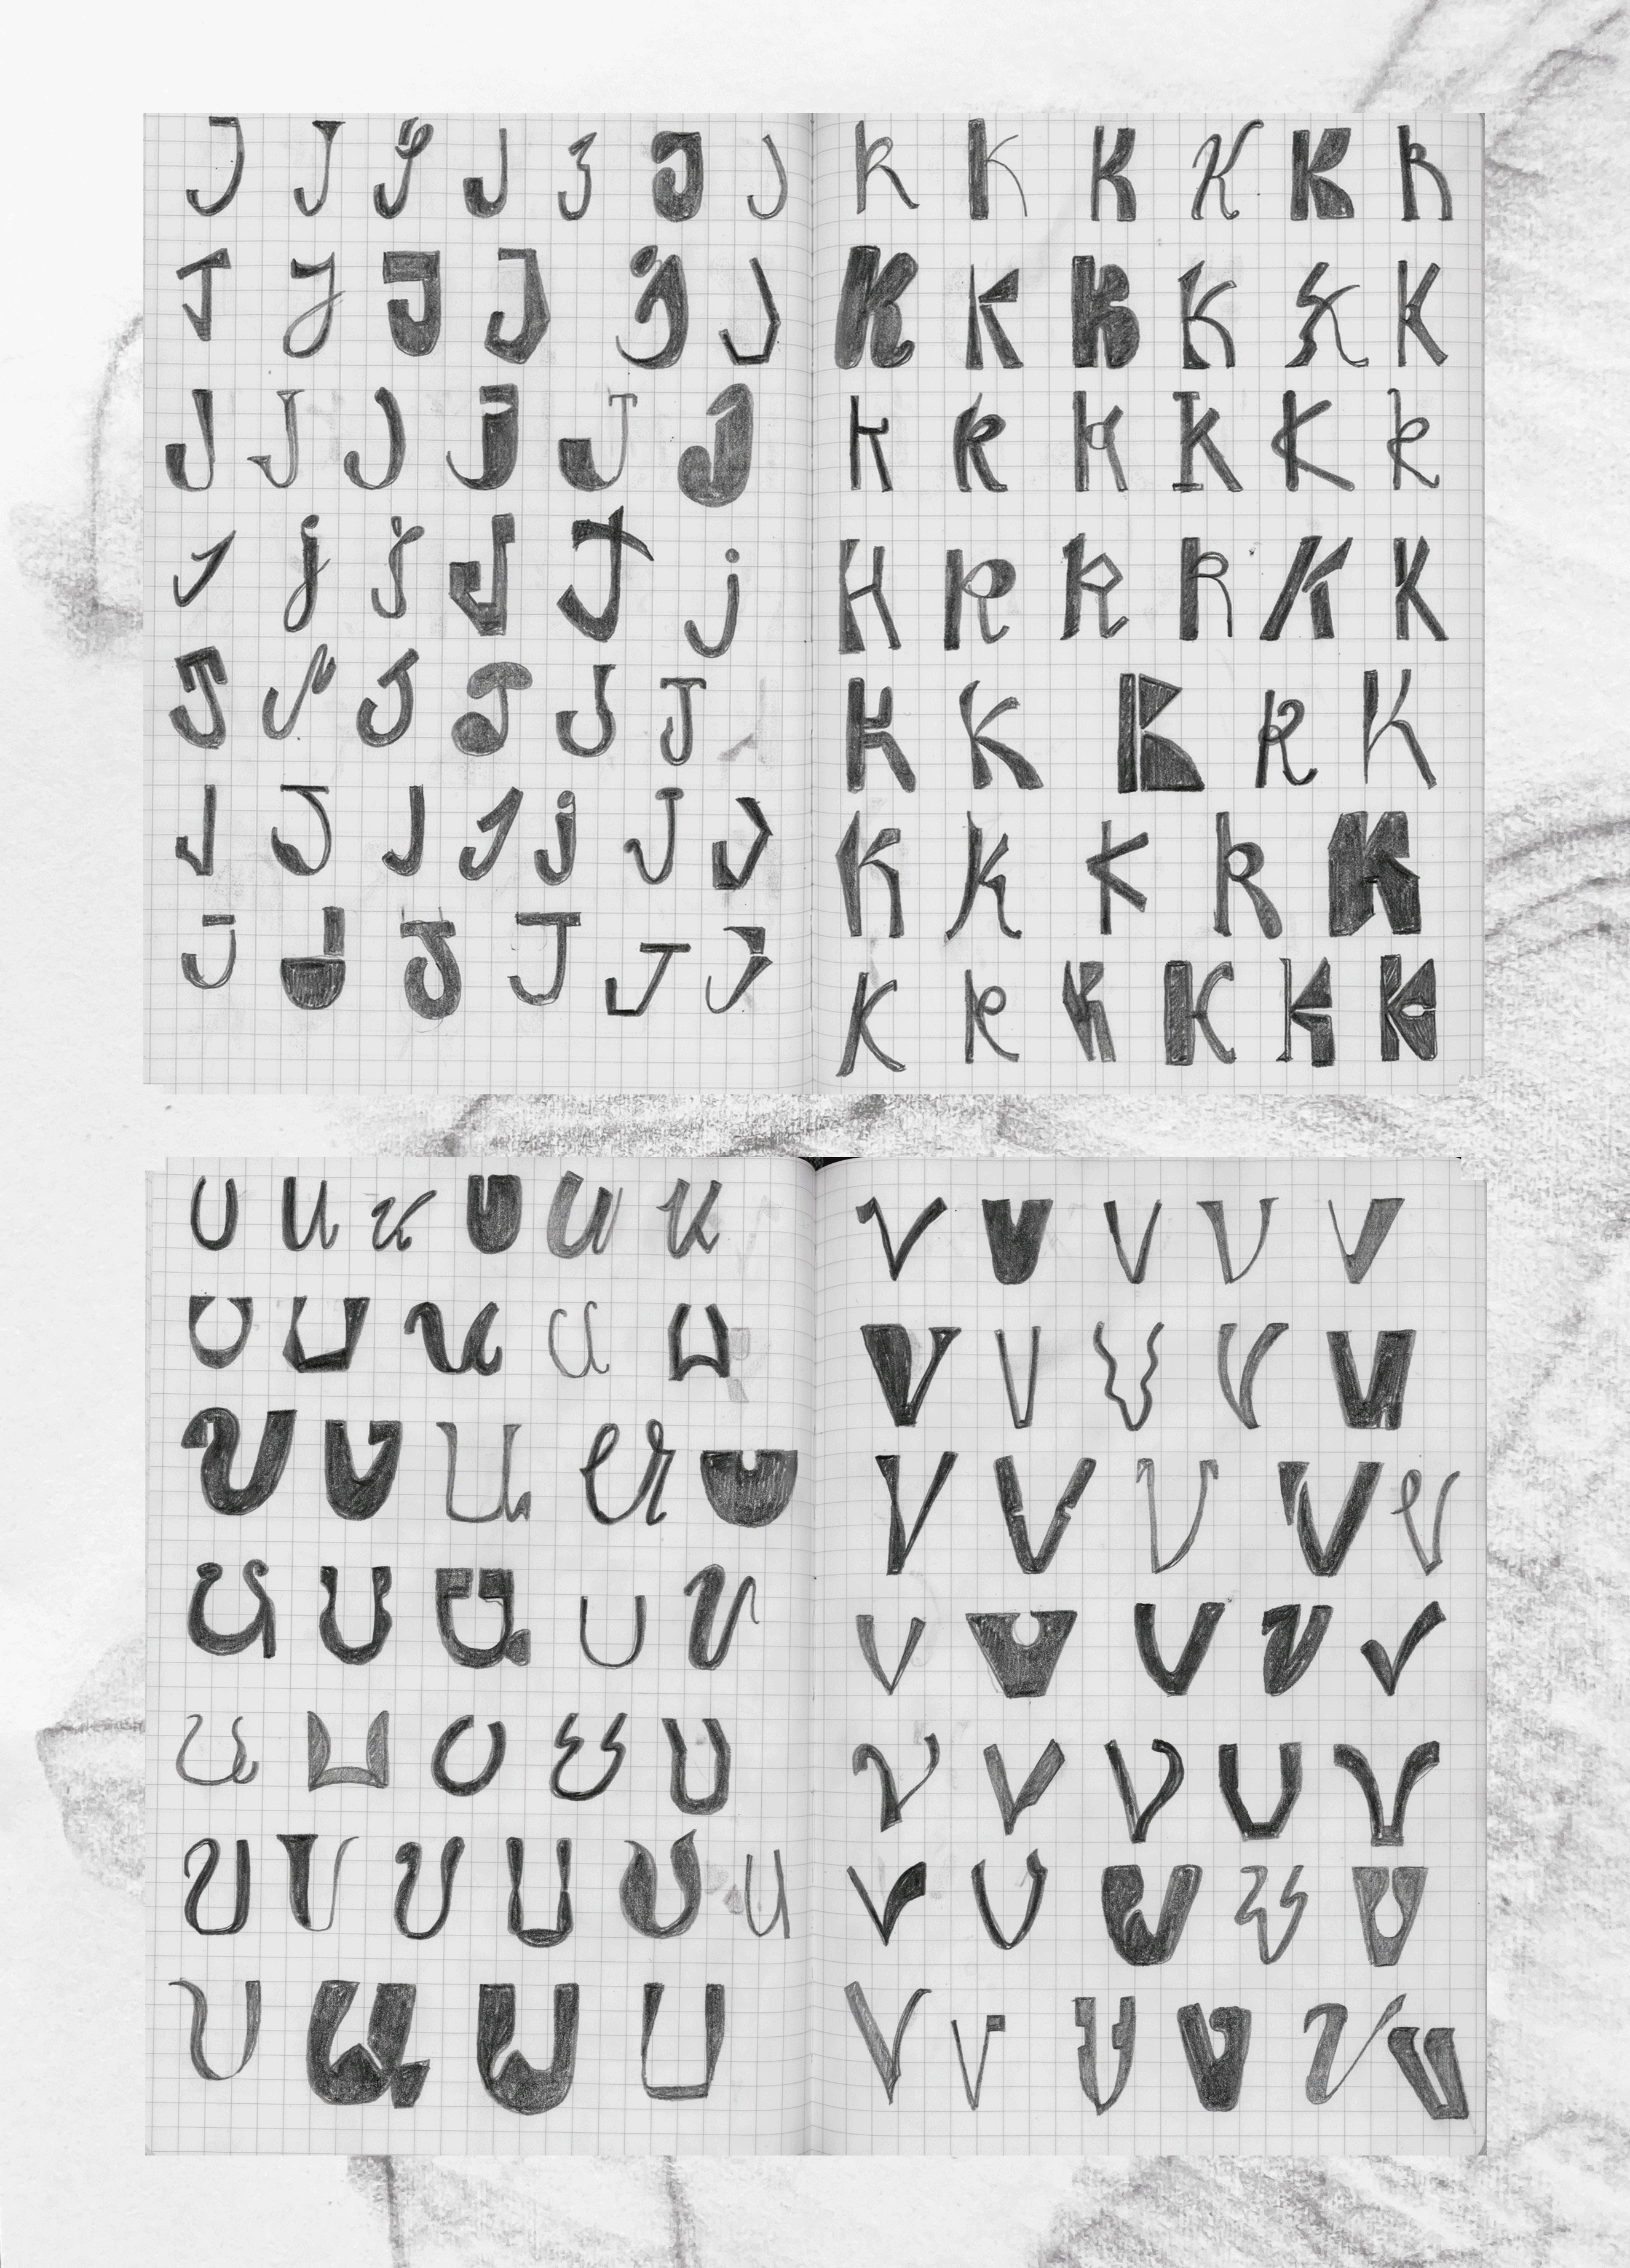 J J J J J J J
J J J J j J
J J J J J J
J j j J J j
J J J J J J
J J J J j J J
J J J J J J
K K K K K K
K K K K K K
K K K K K K
K K K K K K
K K K K K
K K K K K
K K K K K K
U U U U U U
U U U U U
U U U U U
U U U U U
U U U U U
U U U U U U
U U U U
V V V V V
V V V V V
V V V V V
V V V V V
V V V V V
V V V V V
V V V V V V